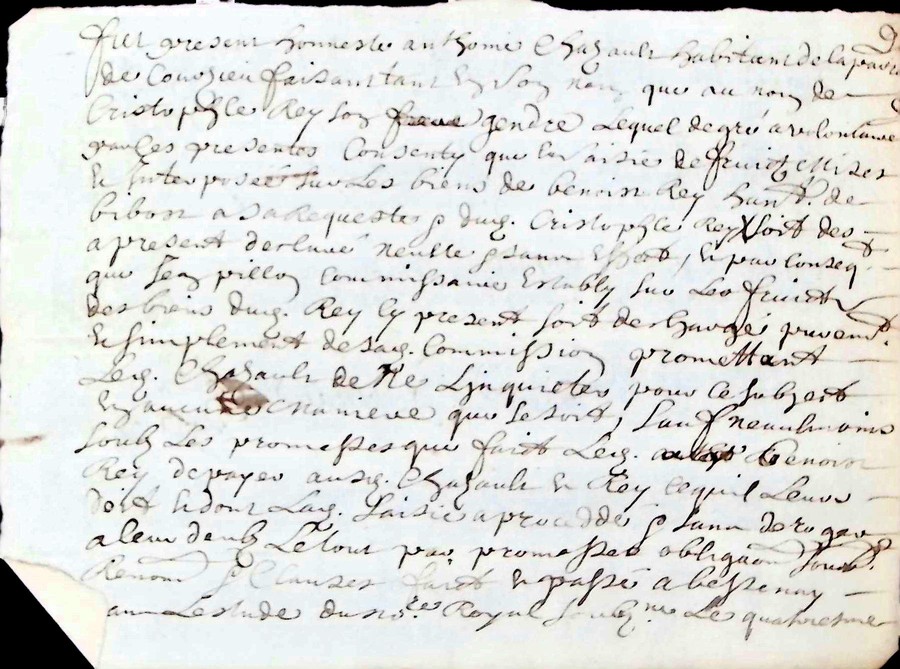 fut present honneste anthoine Chazault habitant de la parr
de Courzieu faisant tant en son nom que au nom de
Cristophle Rey son frere gendre Lequel de gré a volontaire
par Les presentes Consenty que la saisie de fruictz Mises
et Interposée sur Les biens de benoist Rey hant. de
bibost a sa Requeste & dud. Cristophle Rey soit des
a present declairé neulle & sans Effect, et par conseq
que Jean pillon Commissaire Estably sur Les fruictz
des biens dud. Rey Cy present soit descharge purem.t
et simplement de sad. Commission promettant
Led. Chazault de Ne L'inquieter pour ce subject
En aucune Maniere que ce soit, sauf neaulmoins
soubz Les promesses que faict Led. benoist
Rey de payer aud. Chazault et Rey ce quil Leur
doibt et dont Lad. saisie a procedde & sans desroger
a leur deub Le tout par promesses obligaon soubz.
Renom & Clauses faict et passé a bessenay
Lestude du no.re Royal soubz.ne Les quatriesme